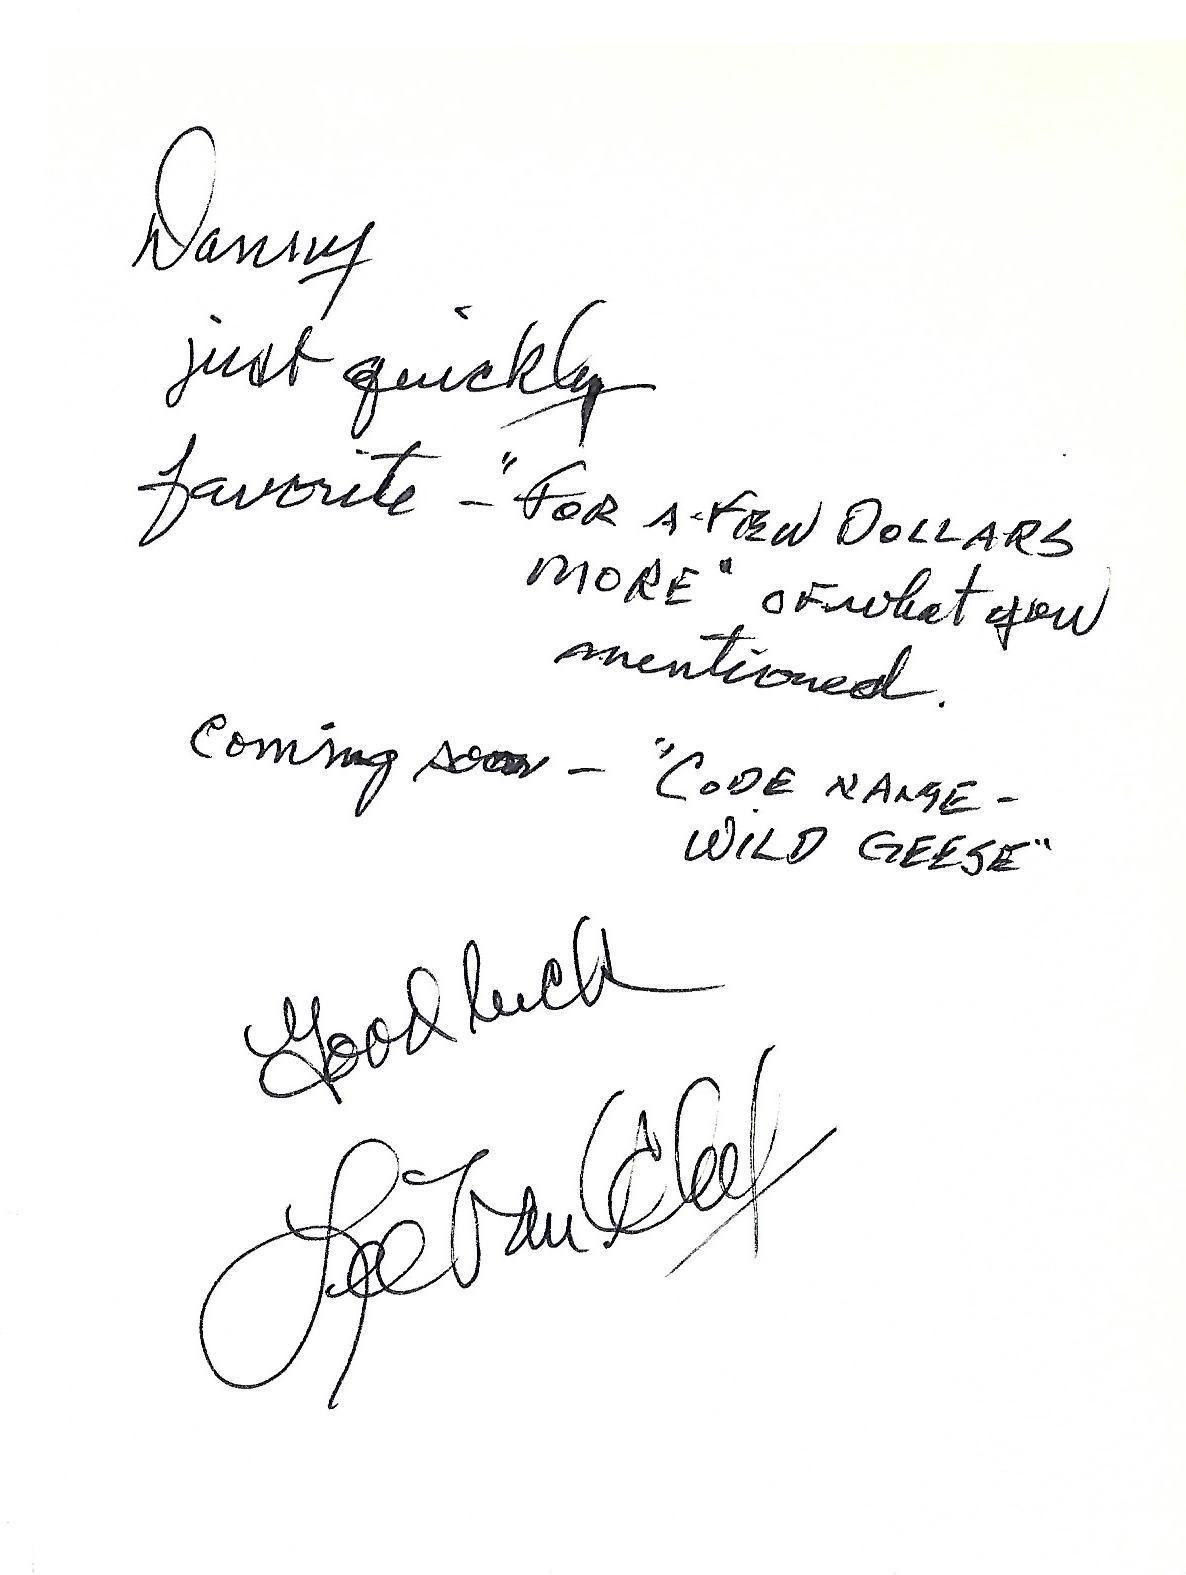 Danny
just quickly
favorite - "FOR A FEW DOLLARS
MORE" OF what you
mentioned.
Coming soon - "CODE NAME -
WILD GEESE"
Good luck
Lee Van Cleef